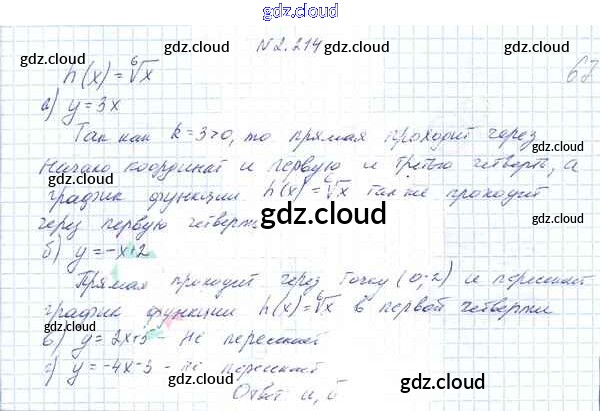 gdz.cloud
gdz.cloud gdz.cloud
N 2.214
h(x) = ⁶√x
gdz.cloud
а) y = 3x
Так как k = 3 > 0, то прямая проходит через
начало координат и первую и третью четверть, а
график функции h(x) = ⁶√x также проходит
gdz.cloud
через первую четверть.
б) y = -x+2
gdz.cloud gdz.cloud
Прямая проходит через точку (0; 2) и пересекает
график функции h(x) = ⁶√x в первой четверти
в) y = 2x+5 - не пересекает
г) y = -4x-3 - не пересекает
gdz.cloud gdz.cloud
Ответ а, б